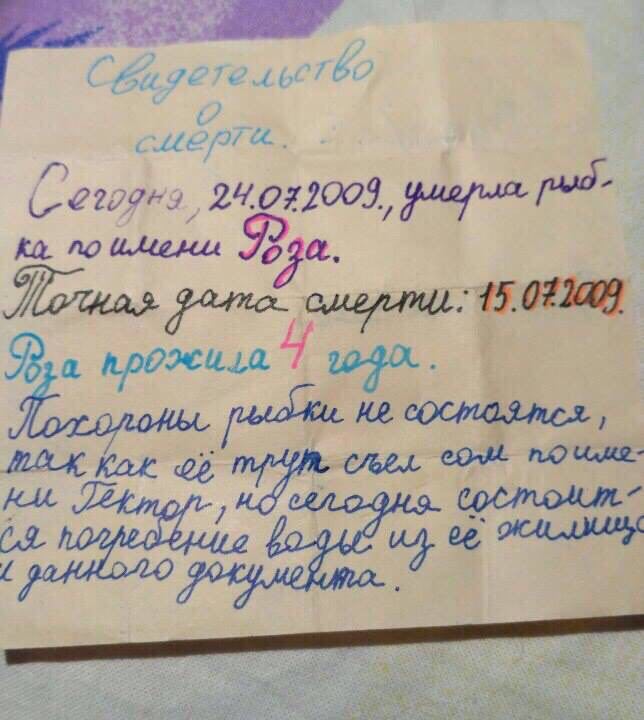 Свидетельство
о
смерти.
Сегодня, 24.07.2009., умерла рыб-
ка по имени Роза.
Точная дата смерти: 15.07.2009.
Роза прожила 4 года.
Похороны рыбки не состоятся,
так как её трут съел сом по име-
ни Гектор, но сегодня состоит-
ся погребение воды из её жилища
и данного документа.